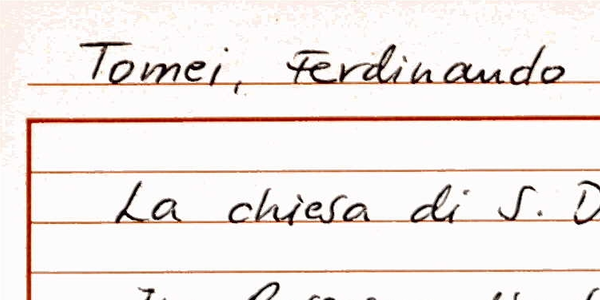 Tomei, Ferdinando
La chiesa di S. D